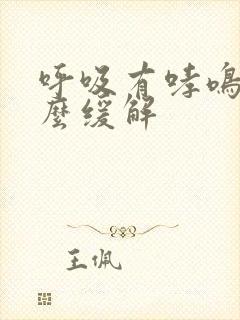 呼吸有哮鳴
麼緩解
王佩